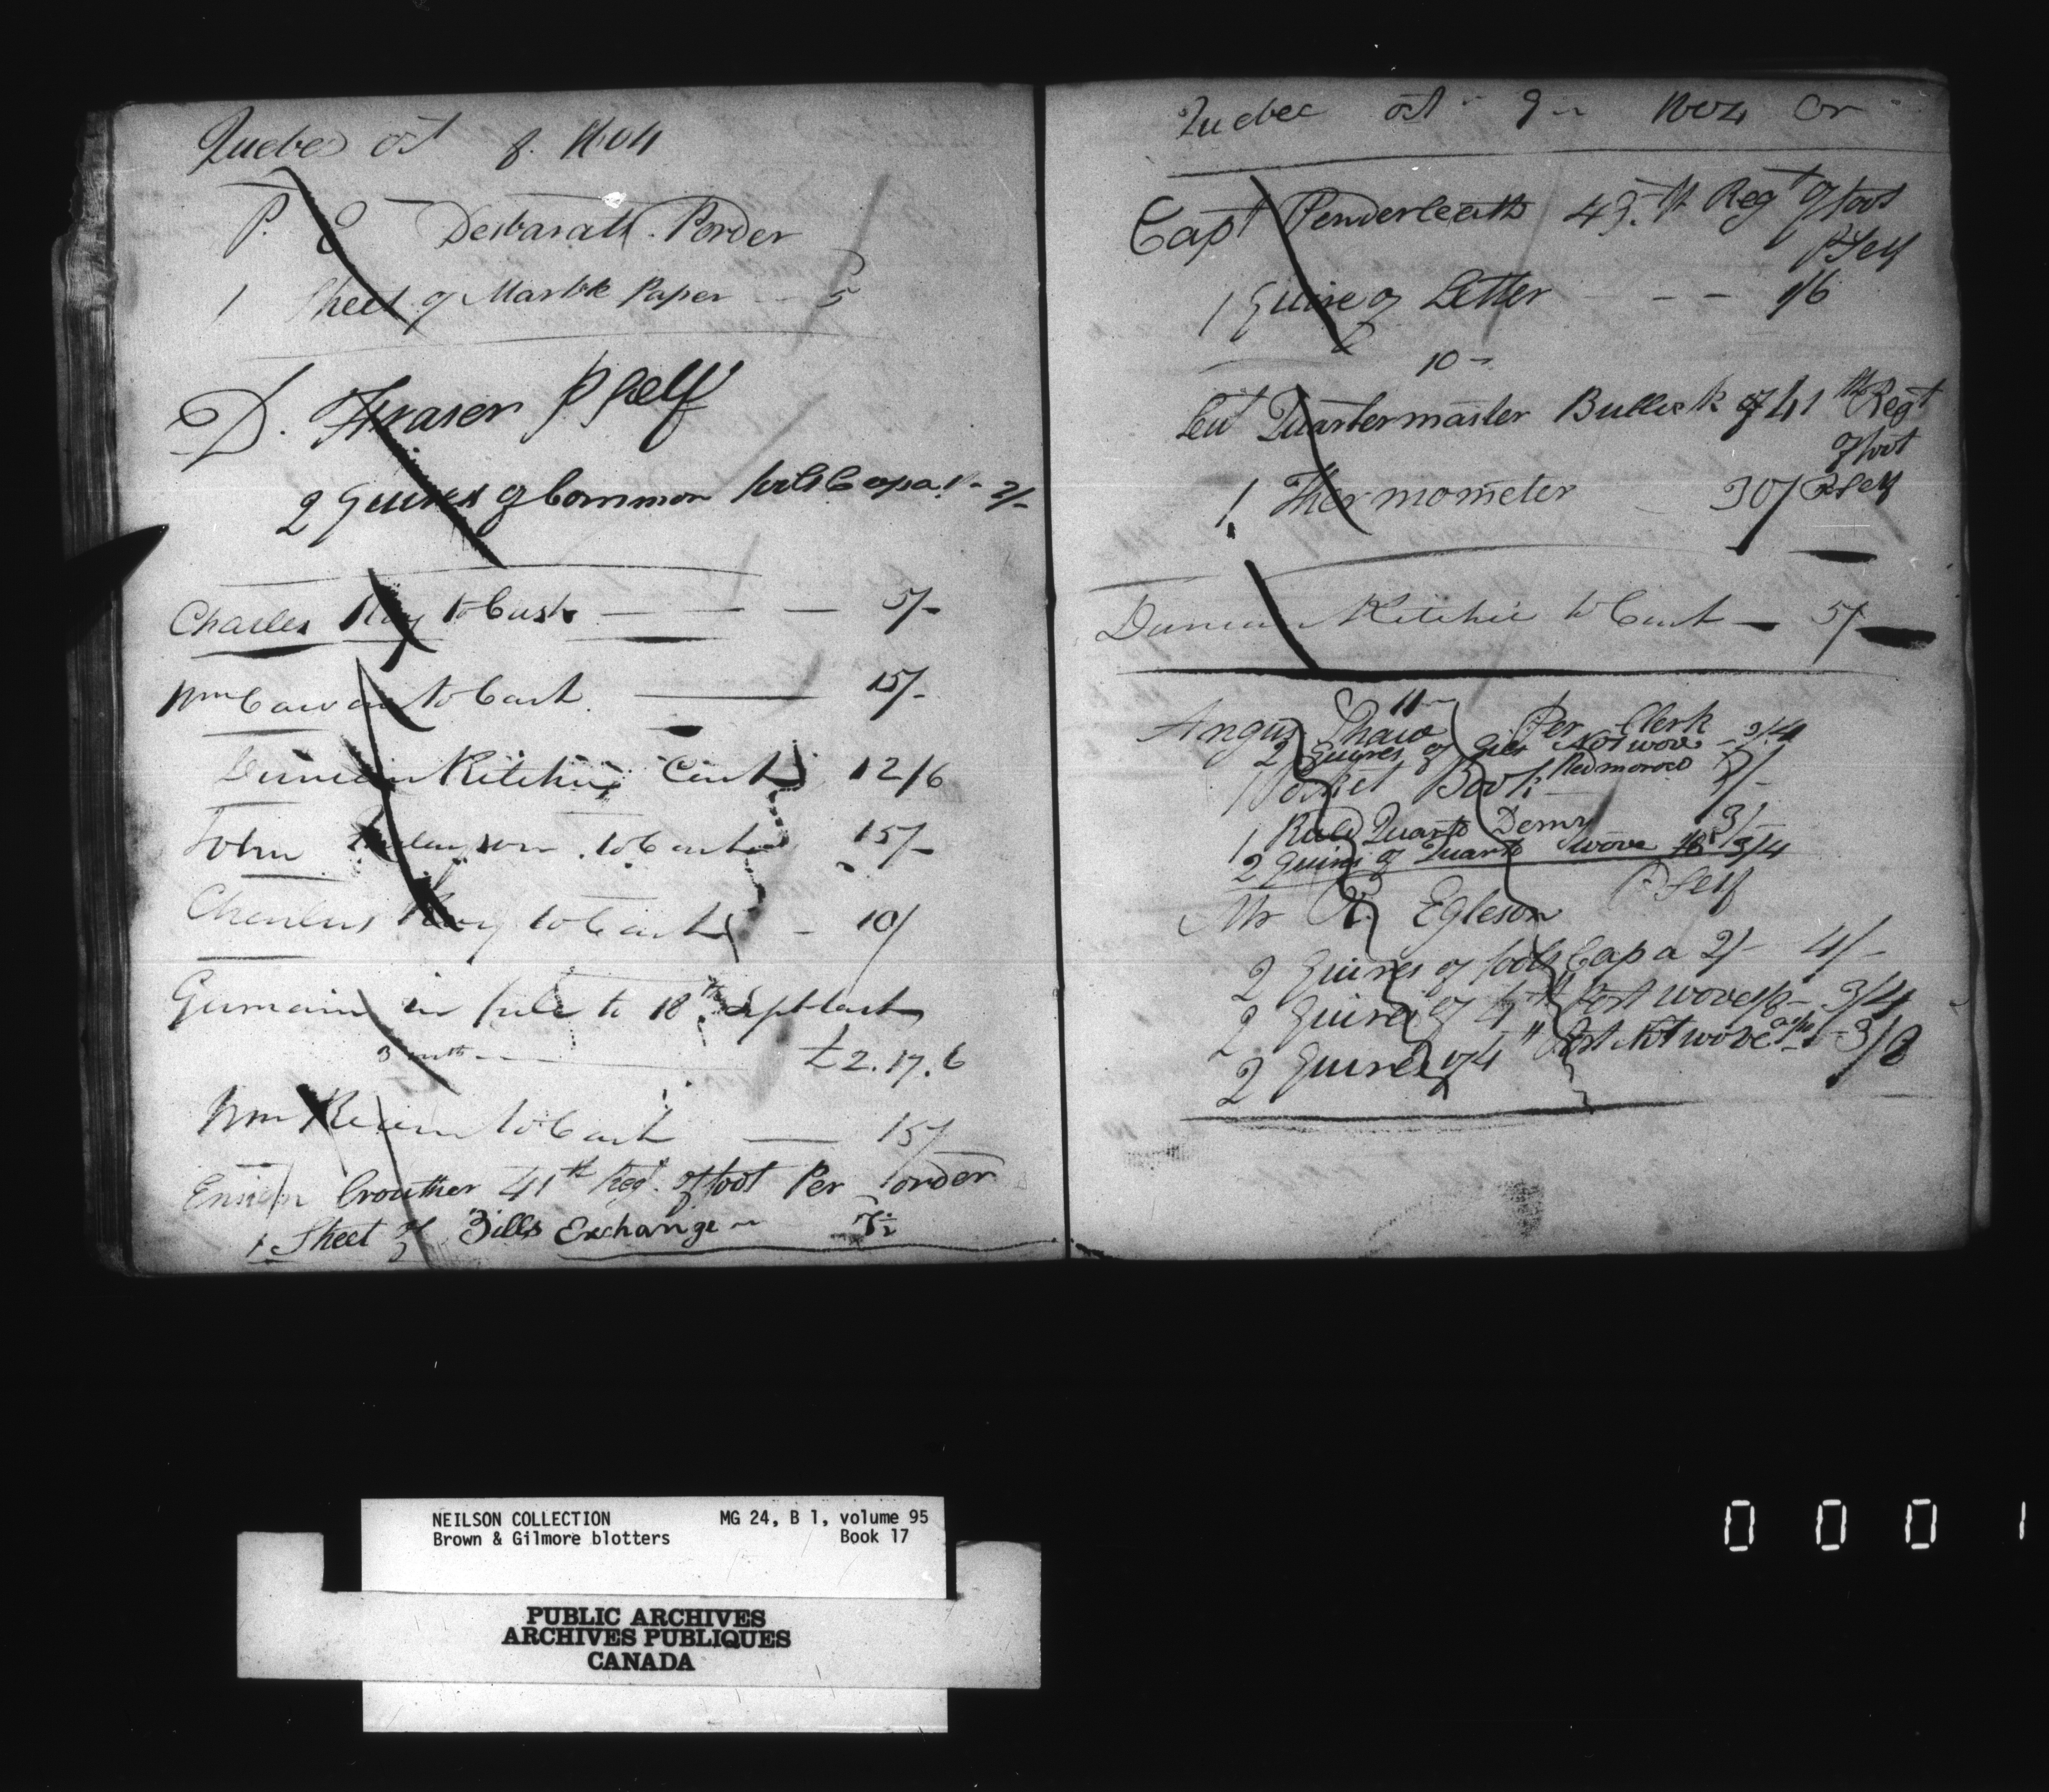 Quebec Oct 8. 1804
P. E Desbarats P order
1 Sheet of Marble Paper 5
D. Fraser P Self
2 Quires of Common fools Cap a 1/- 2/-
Charles Roy to Cash 5/-
Wm Cowan to Cash 15/-
Duncan Ritchie Cash 12/6
John to Cash 15/-
Charles Roy to Cash - 10/
Germain in full to 18th Sept last
3 month £2.17.6
Wm to Cash 15/
Ensign Crouther 41th Regt of foot Per order
1 Sheet of Bills Exchange 7½
Quebec Oct 9 1804 Or
Capt Penderleath 49.th Regt of foot
P Self
1 Quire of Letter - - - 1/6
10 -
Leut Quartermaster Bullock of 41th Regt
of foot
1 Thermometer 30/ P Self
Duncan Ritchie to Cash - 5/-
11 -
Angus Shaw Per Clerk
2 Quires of Gilt Not wove 3/4
1 Pocket Book Red moroco 5/-
1 Ruled Quarto Demy 3/
2 Quires of Quarto wove 3/4
P Self
Mr R. Egleson
2 Quires of fools Cap a 2/- 4/-
2 Quires of 4th Post wove 3/4
2 Quires of 4th Post Not wove 3/
NEILSON COLLECTION MG 24, B 1, volume 95
Brown & Gilmore blotters Book 17
PUBLIC ARCHIVES
ARCHIVES PUBLIQUES
CANADA
0 0 0 1